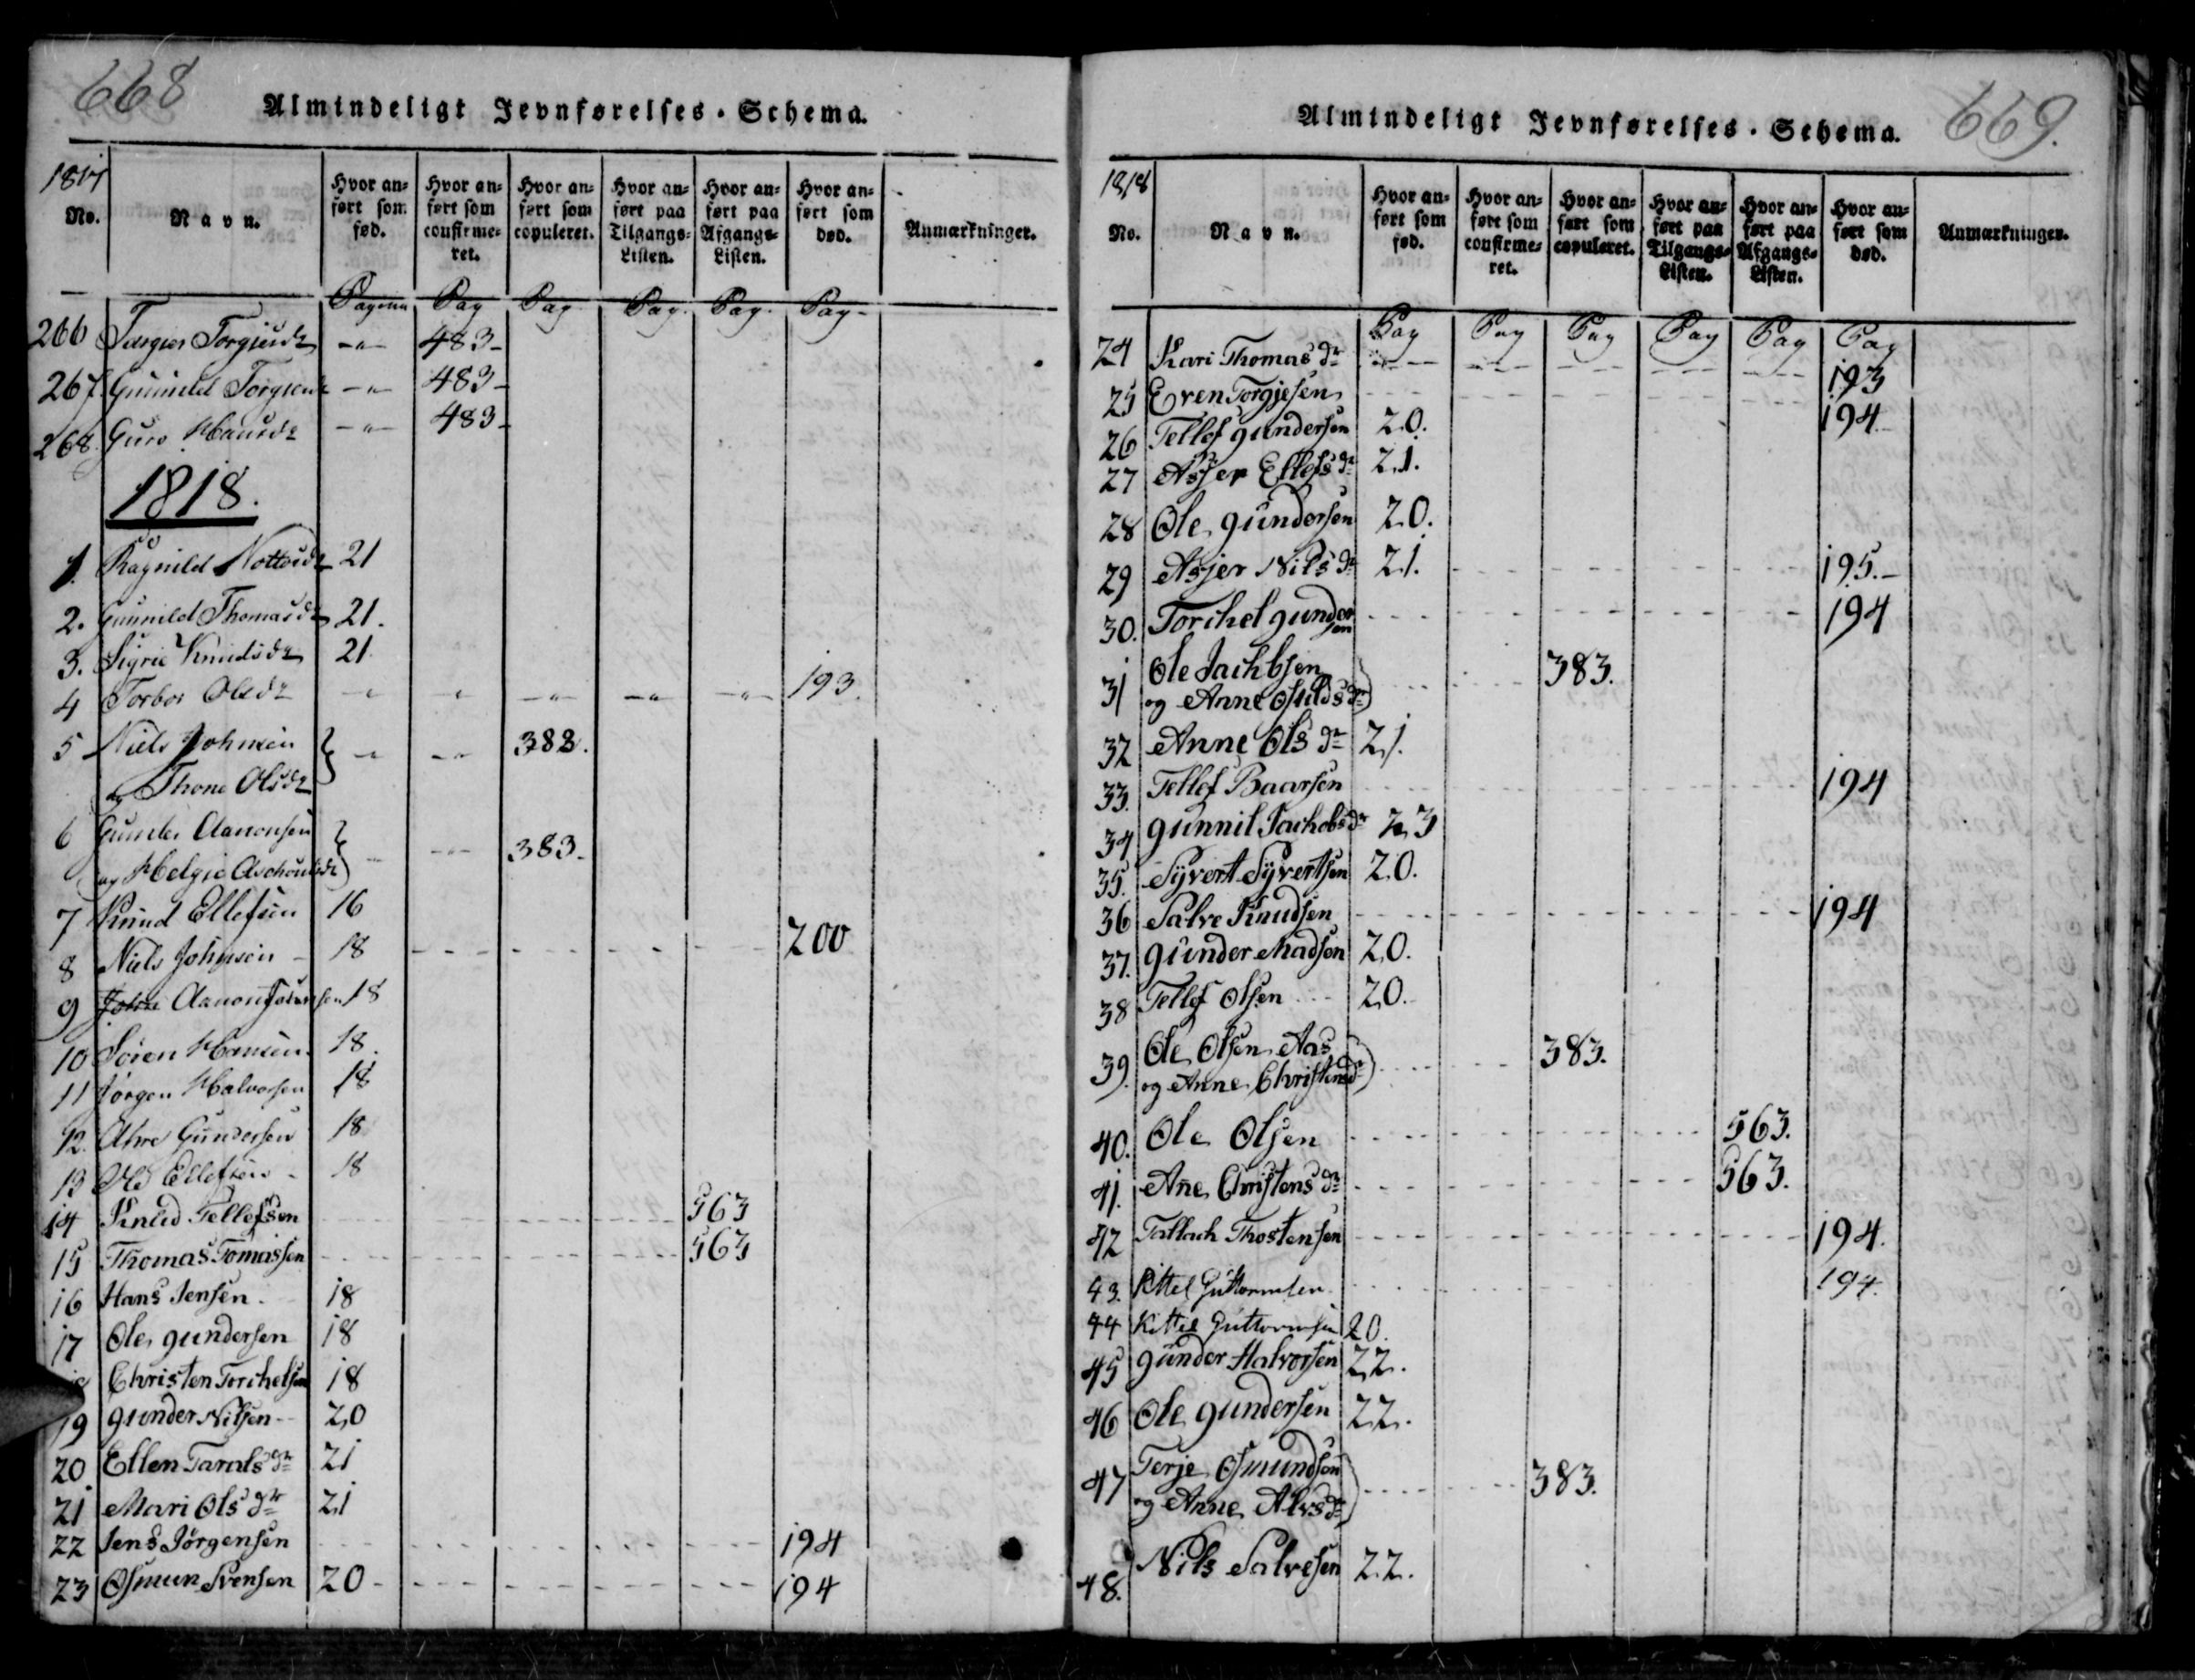 668
Almindeligt Jevnførelses-Schema.
1817
No.
Navn.
Hvor an-
ført som
fød.
Hvor an-
ført som
confirme-
ret.
Hvor an-
ført som
copuleret.
Hvor an-
ført paa
Tilgangs-
Listen.
Hvor an-
ført paa
Afgangs-
Listen.
Hvor an-
ført som
død.
Anmærkninger.
Pagina Pag Pag Pag. Pag. Pag-
266 Torgiusdr -"- 483-
267. Gunnild -"- 483-
268. Guro Hansdr -"- 483-
1818.
1. Ragnild 21
2. Gunnild Thomasdr 21.
3. Sigrie Knudsdr 21.
4 Torbor Olsdr -"- -"- -"- -"- -"- 193.
5 Niels Johnsen
og Thone Olsdr } -"- -"- 382.
6 Gunder Aanonsen
og Helgie } -- --- 383.
7 Knud Ellefsen 16
8 Niels Johnsen - 18 - - - 200
9 Aanon 18
10 Søren Hansen. 18.
11 Jørgen Halvorsen 18
12. Gundersen 18
13 Ole Ellefsen - 18
14 Knud Tellefsen - - - 563
15 Thomas Tomassen - - - 563
16 Hans Jensen. 18
17 Ole gundersen 18
Christen Torchelsen 18
19 gunder Nilsen-- 20
20. Ellen Taralsdr 21
21 Mari Olsdtr 21
22 Jens Jørgensen - - - 194
23 Osmun Svensen 20 - - - 194
669.
Almindeligt Jevnførelses-Schema.
1818
No.
Navn.
Hvor an-
ført som
fød.
Hvor an-
ført som
confirme-
ret.
Hvor an-
ført som
copuleret.
Hvor an-
ført paa
Tilgangs-
Listen.
Hvor an-
ført paa
Afgangs-
Listen.
Hvor an-
ført som
død.
Anmærkninger.
Pag Pag Pag Pag Pag Pag
24 Kari Thomasdr - - - 193
25 Even Torgjesen - - - 194
26 Tellef gundersen 20.
27 Asjer Ellefsdr 21.
28 Ole gundersen 20.
29 Asjer Nilsdr 21. - - - 195.-
30. Torchel gunder
sen - - - 194
31 Ole Jachbsen
og Anne Osuldsdr) - - - 383.
32 Anne Olsdr 21.
33. Tellef Baarsen - - - 194
34 gunnil Jachobsdr 23
35. Syvert Syvertsen 20.
36 Salve Knudsen - - - 194
37. gunder Madsen 20.
38 Tellef Olsen - - 20.
39. Ole Olsen Aas
og Anne Christensdr) - - - 383.
40. Ole Olsen - - - 563.
41. Ane Christensdr - - - 563.
42 Tallach Thostensen - - - 194.
43. Kittel Guttormsen. - - - 194.
44 Kittel Guttormsen 20.
45 gunder Halvorsen 22.
46 Ole gundersen 22.
47 Terje Osmundsen
og Anne Alvsdr) - - - 383.
48. Nils Salvesen 22.